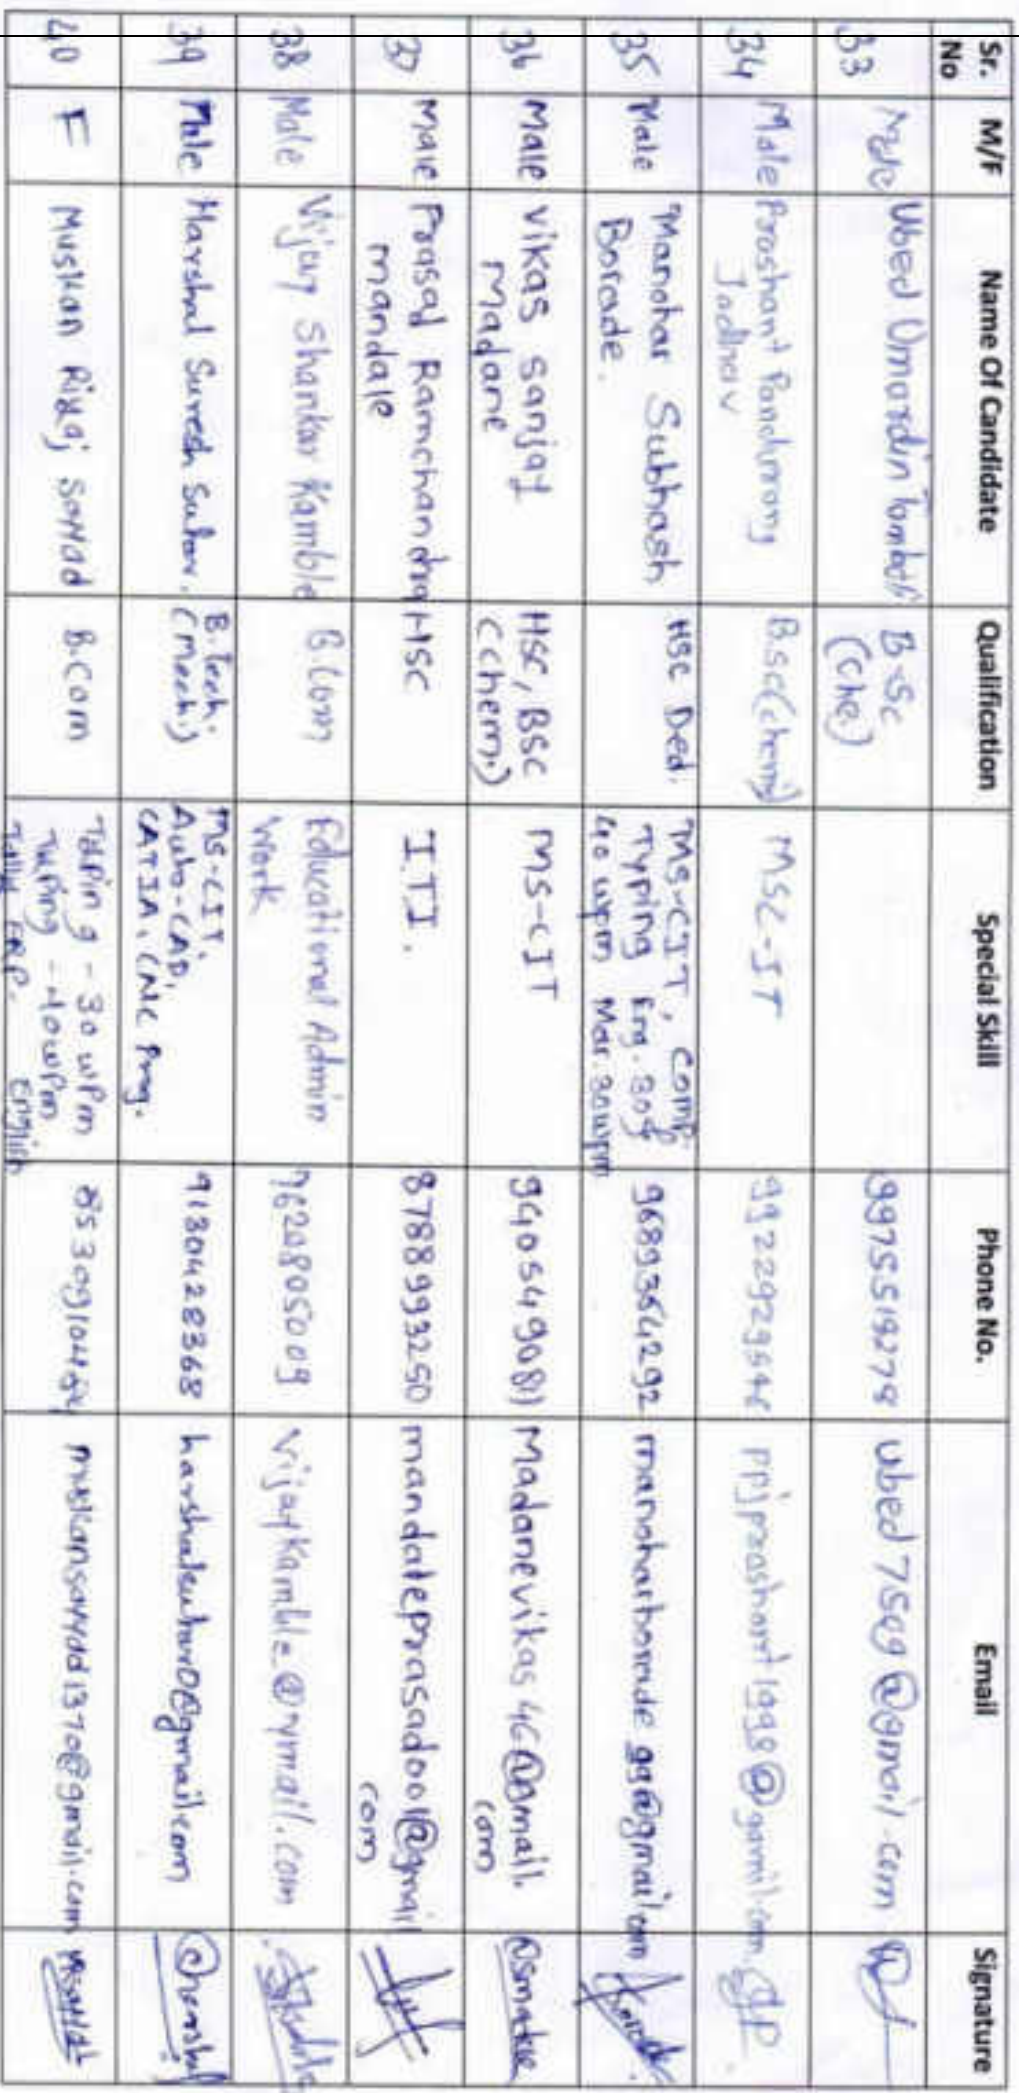 Sr. No M/F Name Of Candidate Qualification Special Skill Phone No. Email Signature
33 Male Ubed B.Sc (Che.) 9975519278 ubed7509@gmail.com
34 Male Prashant Pandurang Jadhav B.sc(chem) MSC-IT
35 Male Manohar Subhash Borade. HSC Ded. MS-CIT, Comp. Typing Eng. 30 & 40 wpm Mar. 30 wpm 9689354292 manoharborade99@gmail.com
36 Male Vikas Sanjay Madane HSC, BSC (chem.) MS-CIT 9405490811 Madanevikas46@gmail.com
37 Male Prasad Ramchandra mandale HSC I.T.I. 8788993250 mandaleprasad001@gmail com
38 Male Vijay Shankar Kamble B.Com Educational Admin Work 9628805009 Vijaykamble@ymail.com
39 Male Harshal Suresh Sutar. B.Tech. (Mech.) MS-CIT, Auto-CAD, CATIA, CNC Prog. 9130428368 harshalsutar0@gmail.com
40 F Muskan Riyaj Sayyad B.Com Typing - 30 wpm Typing - 40 wpm English Tally ERP. muskansayyad1370@gmail.com